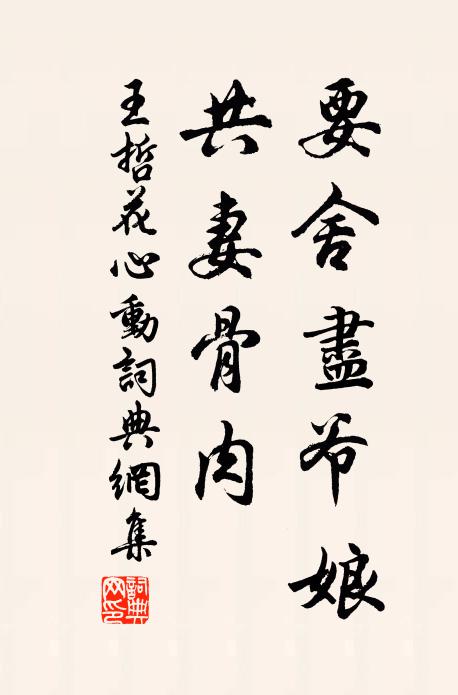 要舍盡爷娘
共妻骨肉
王哲花心動詞典網集
詞典网印